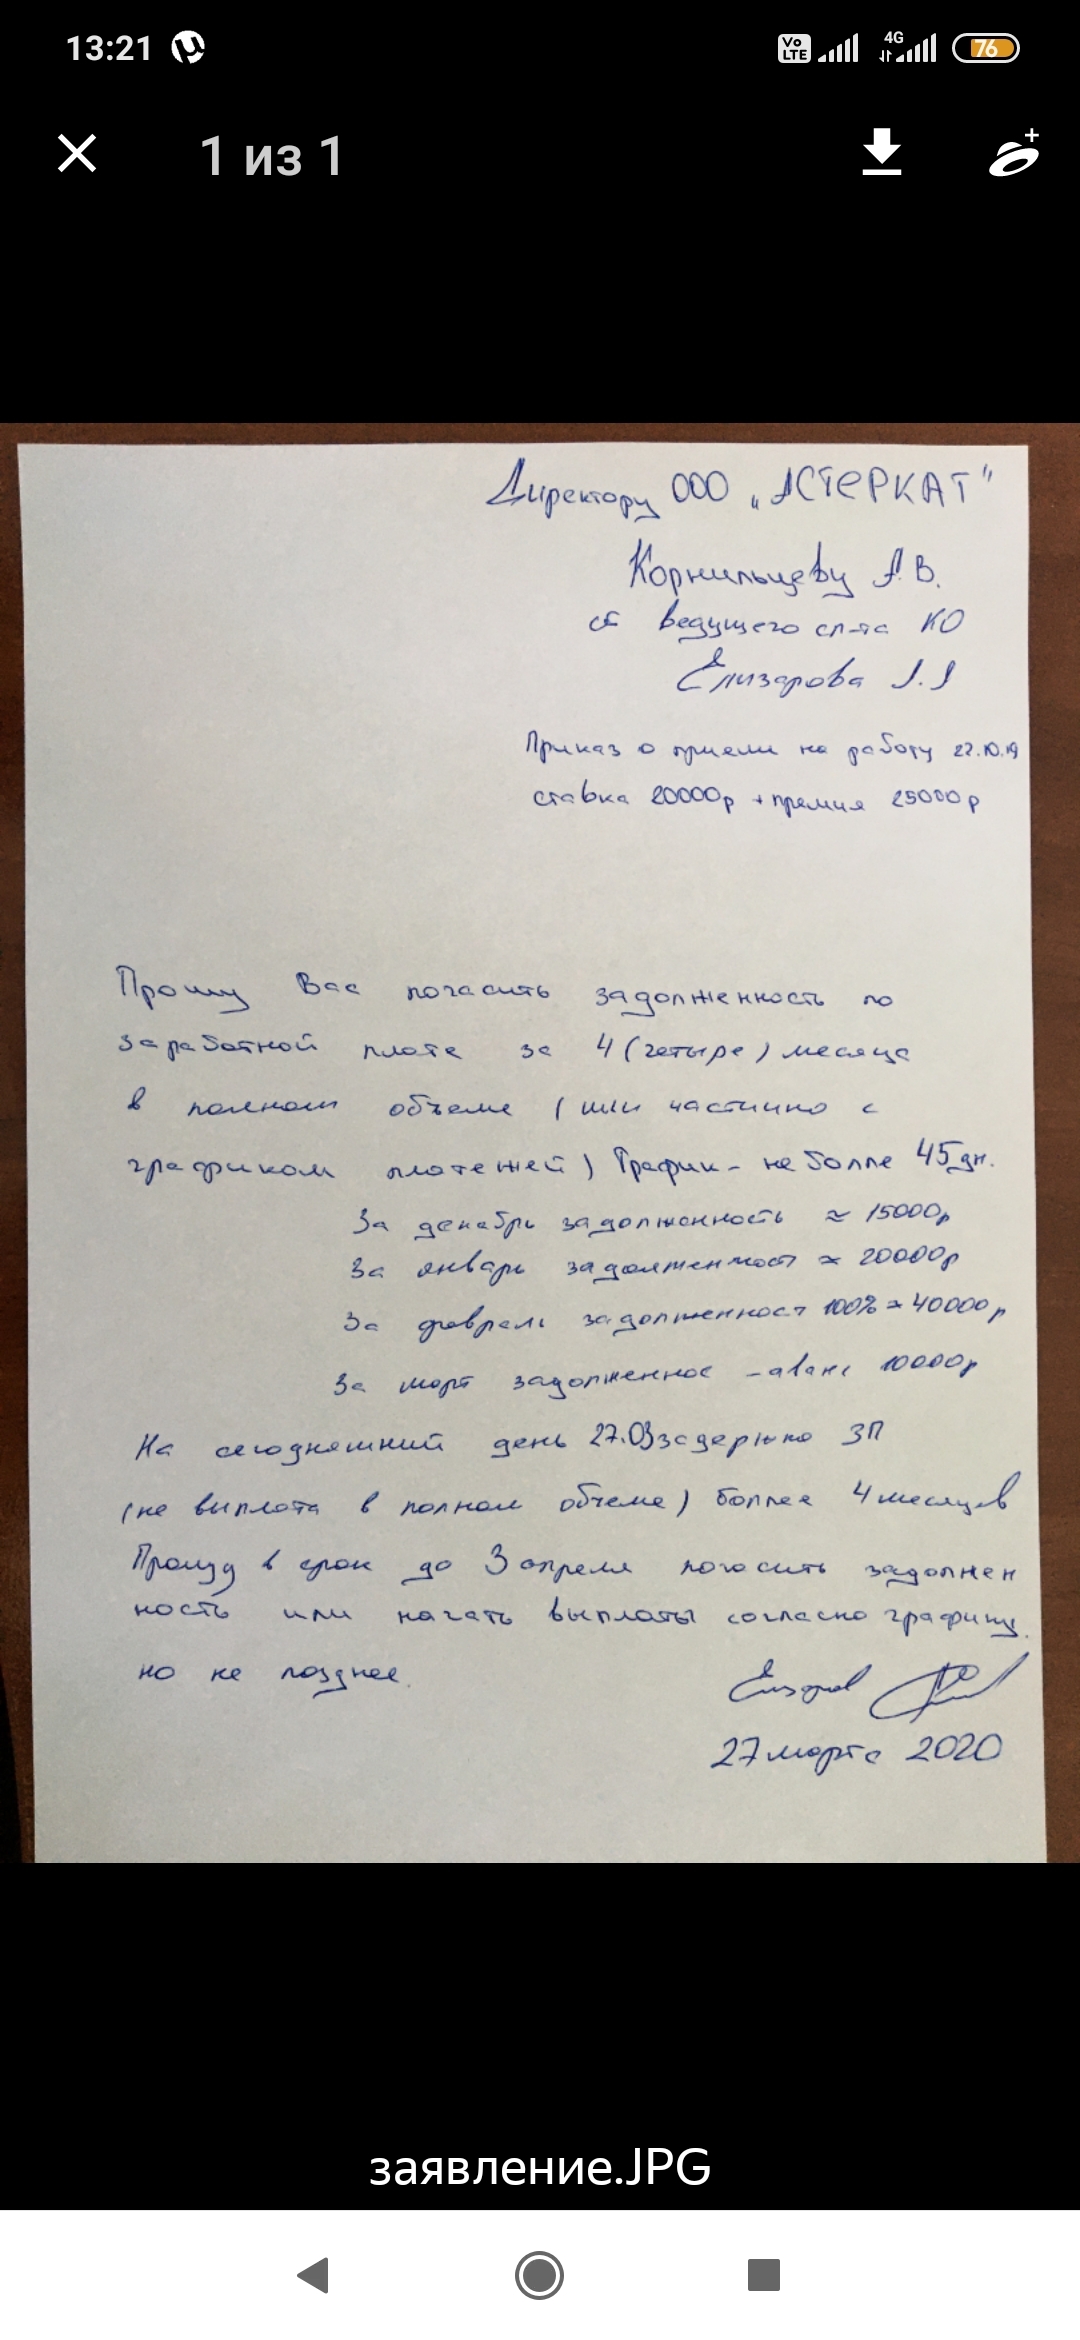 13:21
Vo LTE 4G 76
1 из 1
Директору ООО „АСТЕРКАТ"
Корнильцеву А.В.
от ведущего сп-та КО
Елизарова
Приказ о приеми на работу 22.10.19
ставка 20000р + премия 25000р
Прошу Вас погасить задолженность по
заработной плате за 4 (четыре) месяца
в полном объеме (или частично с
графиком платежей) График - не более 45 дн.
За декабрь задолженность ≈ 15000р
За январь задолженност ≈ 20000р
За февраль задолженност 100% ≈ 40000р
За март задолженнос - аванс 10000р
На сегодняшний день 27.03 задержка ЗП
(не выплата в полном объеме) более 4 месяцев
Прошу в срок до 3 апреля погасить задолжен
ность или начать выплаты согласно графику.
но не позднее.
Елизаров
27 марта 2020
заявление.JPG